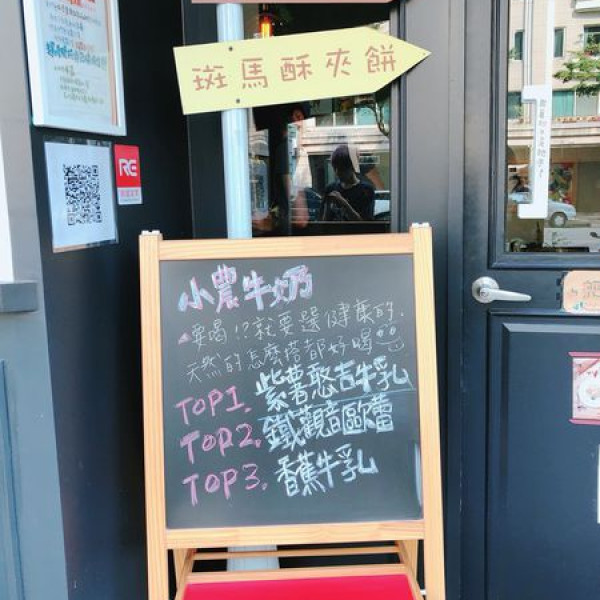 斑馬酥夾餅
RE
小農牛奶
要喝!?就要選健康的.
天然的怎麼搭都好喝
TOP1. 紫薯憨吉牛乳
TOP2. 鐵觀音歐蕾
TOP3. 香蕉牛乳